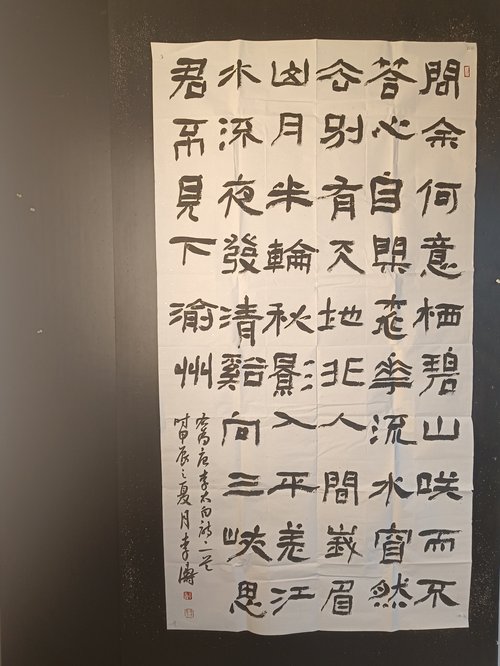 問余何意栖碧山咲而不
答心自閑桃華流水窅然
去別有天地非人間峩眉
山月半輪秋影入平羌江
水流夜發清谿向三峽思
君不見下渝州
唐李太白詩二首
时甲辰之夏月李濤